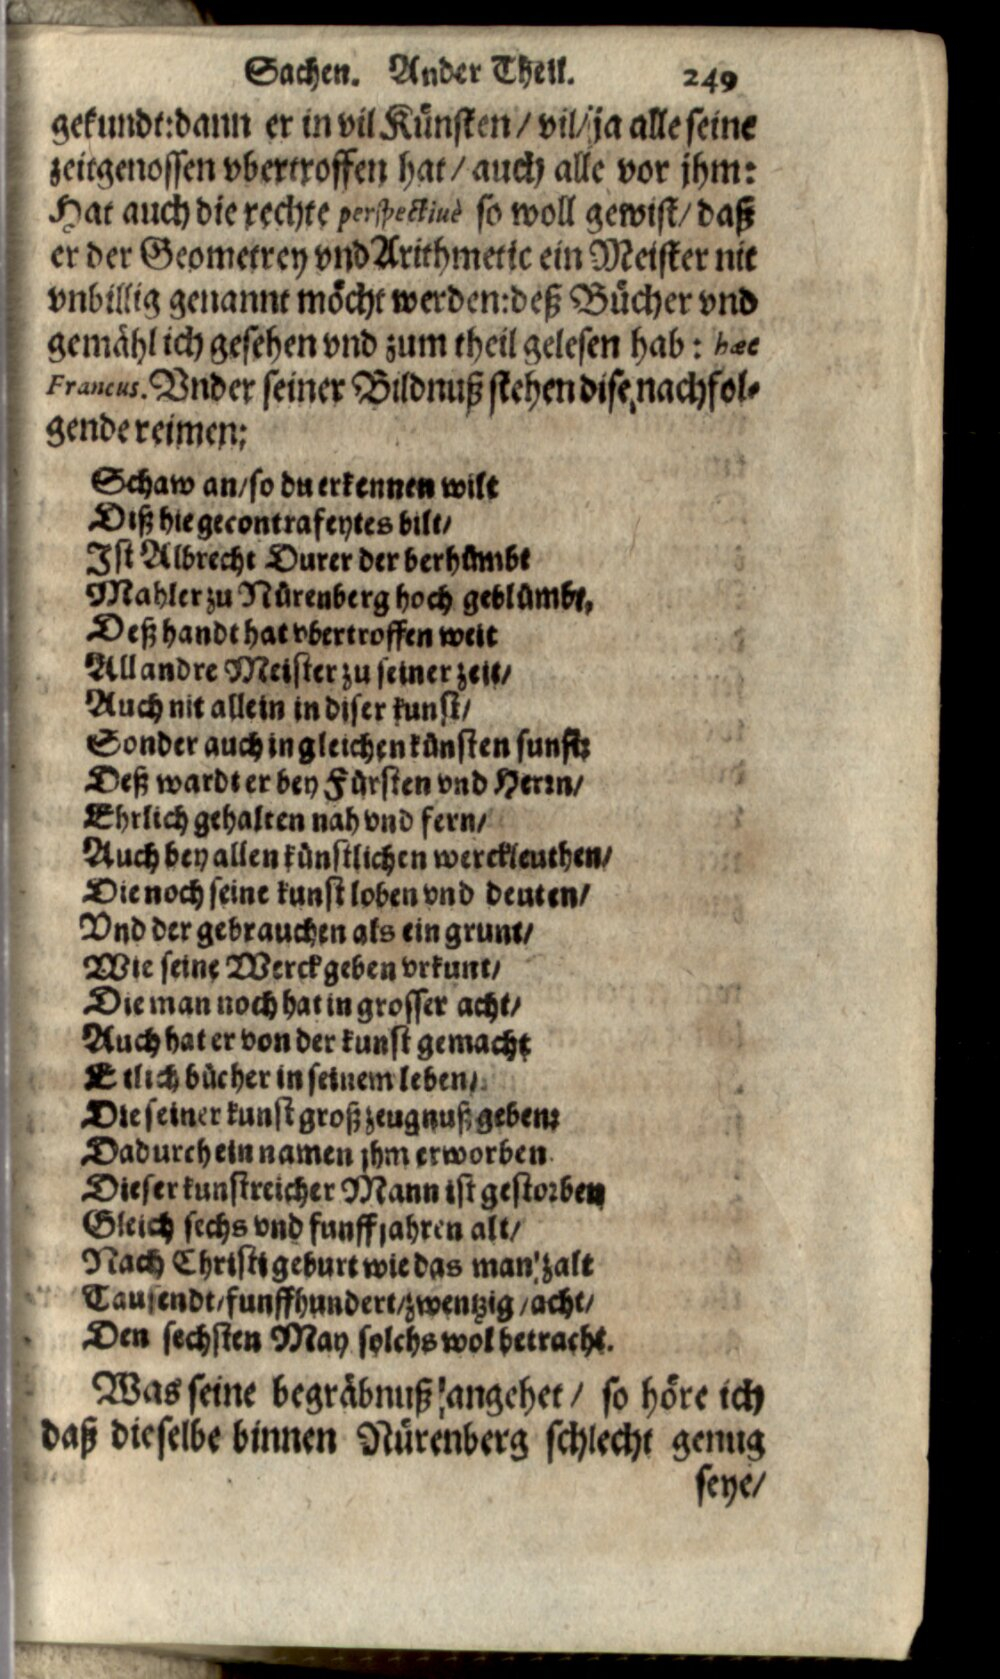 Sachen. Ander Theil. 249
gekundt: dann er in vil Künsten / vil / ja alle seine
zeitgenossen vbertroffen hat / auch alle vor jhm:
Hat auch die rechte perspectiuè so woll gewist / daß
er der Geometrey vnd Arithmetic ein Meister nit
vnbillig genannt möcht werden: deß Bücher vnd
gemähl ich gesehen vnd zum theil gelesen hab: hæc
Francus. Vnder seiner Bildnuß stehen dise nachfol-
gende reimen:
Schaw an / so du erkennen wilt
Diß hie gecontrafeytes bilt /
Ist Albrecht Durer der berhümbt
Mahler zu Nürenberg hoch geblümbt,
Deß handt hat vbertroffen weit
All andre Meister zu seiner zeit /
Auch nit allein in diser kunst /
Sonder auch in gleichen künsten sunst:
Deß wardt er bey Fürsten vnd Herrn /
Ehrlich gehalten nah vnd fern /
Auch bey allen künstlichen werckleuthen /
Die noch seine kunst loben vnd deuten /
Vnd der gebrauchen als ein grunt /
Wie seine Werck geben vrkunt /
Die man noch hat in grosser acht /
Auch hat er von der kunst gemacht
Etlich bücher in seinem leben /
Die seiner kunst groß zeugnuß geben:
Dadurch ein namen jhm erworben.
Dieser kunstreicher Mann ist gestorben
Gleich sechs vnd funff jahren alt /
Nach Christi geburt wie das man zalt
Tausendt / funffhundert / zwentzig / acht /
Den sechsten May solchs wol betracht.
Was seine begräbnuß angehet / so höre ich
daß dieselbe binnen Nürenberg schlecht genug
seye /